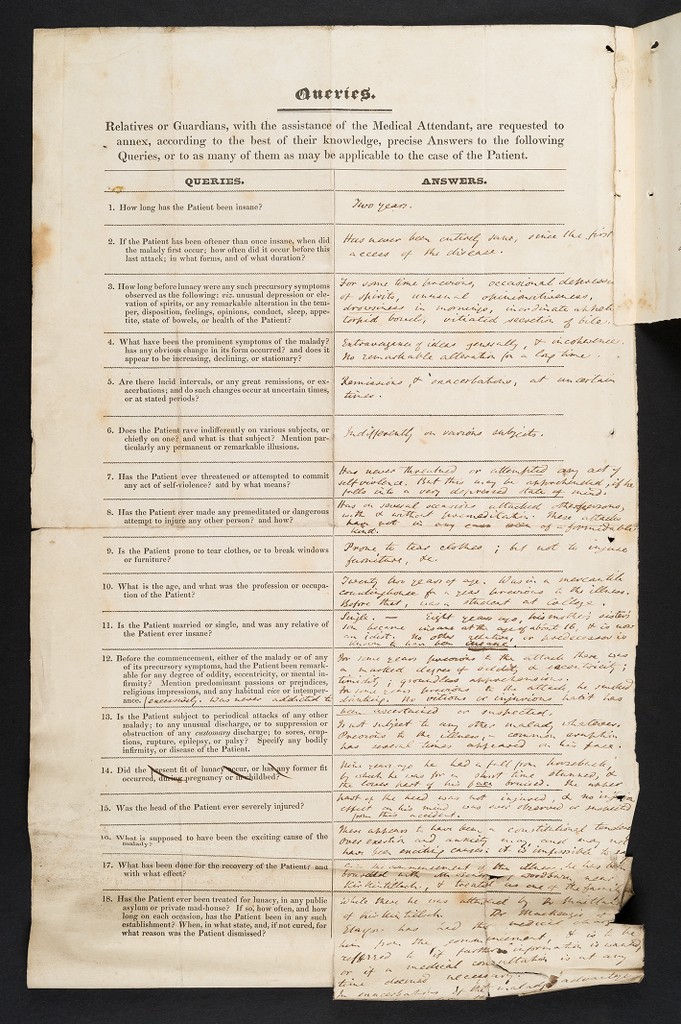 Queries.
Relatives or Guardians, with the assistance of the Medical Attendant, are requested to
annex, according to the best of their knowledge, precise Answers to the following
Queries, or to as many of them as may be applicable to the case of the Patient.
QUERIES.
ANSWERS.
1. How long has the Patient been insane?
Two years.
2. If the Patient has been oftener than once insane, when did
the malady first occur; how often did it occur before this
last attack; in what forms, and of what duration?
Has never been entirely sane, since the first
access of the disease.
3. How long before lunacy were any such precursory symptoms
observed as the following; viz. unusual depression or ele-
vation of spirits, or any remarkable alteration in the tem-
per, disposition, feelings, opinions, conduct, sleep, appe-
tite, state of bowels, or health of the Patient?
For some time previous, occasional depression
of spirits, unusual
drowsiness in mornings, inordinate
torpid bowels, vitiated secretion of bile.
4. What have been the prominent symptoms of the malady?
has any obvious change in its form occurred? and does it
appear to be increasing, declining, or stationary?
Extravagance of ideas generally, & incoherence.
No remarkable alteration for a long time.
5. Are there lucid intervals, or any great remissions, or ex-
acerbations; and do such changes occur at uncertain times,
or at stated periods?
Remissions, & exacerbations, at uncertain
times.
6. Does the Patient rave indifferently on various subjects, or
chiefly on one? and what is that subject? Mention par-
ticularly any permanent or remarkable illusions.
Indifferently on various subjects.
7. Has the Patient ever threatened or attempted to commit
any act of self-violence? and by what means?
Has never threatened or attempted any act of
self violence. But this may be apprehended, if he
falls into a very depressed state of mind.
8. Has the Patient ever made any premeditated or dangerous
attempt to injure any other person? and how?
Has on several occasions attacked other persons,
with & without premeditation. These attacks
have not in any case been of a formidable
kind.
9. Is the Patient prone to tear clothes, or to break windows
or furniture?
Prone to tear clothes; but not to injure
furniture, &c.
10. What is the age, and what was the profession or occupa-
tion of the Patient?
Twenty two years of age. Was in a mercantile
countinghouse for a year previous to the illness.
Before that, was a student at College.
11. Is the Patient married or single, and was any relative of
the Patient ever insane?
Single. — Eight years ago, his mother's sister's
son became insane at the age of about 16, & is now
an idiot. No other relation, or predecessor is
known to have been insane.
12. Before the commencement, either of the malady or of any
of its precursory symptoms, had the Patient been remark-
able for any degree of oddity, eccentricity, or mental in-
firmity? Mention predominant passions or prejudices,
religious impressions, and any habitual vice or intemper-
ance.
For some years previous to the attack there was
a marked degree of oddity, & eccentricity;
timidity, & groundless apprehensions.
For some years previous to the attack, he smoked
excessively. Was never addicted to
drinking. No vitious or injurious habit has
been ascertained or suspected.
13. Is the Patient subject to periodical attacks of any other
malady; to any unusual discharge, or to suppression or
obstruction of any customary discharge; to sores, erup-
tions, rupture, epilepsy, or palsy? Specify any bodily
infirmity, or disease of the Patient.
Is not subject to any other malady whatever.
Previous to the illness, a common eruption
has several times appeared on his face.
14. Did the present fit of lunacy occur, or has any former fit
occurred, during pregnancy or in childbed?
15. Was the head of the Patient ever severely injured?
years ago he had a fall from horseback,
by which he was for a short time stunned, &
the lower part of his face bruised. The upper
part of the head was not injured & no
effect on his mind was ever observed or suspected
from this accident.
16. What is supposed to have been the exciting cause of the
malady?
There appears to have been a constitutional tendency
Over exertion and anxiety may, and may not,
have been exciting causes. It is impossible to
17. What has been done for the recovery of the Patient? and
with what effect?
commencement of the illness he was
boarded with near
Kirkintilloch, & treated as one of the family
18. Has the Patient ever been treated for lunacy, in any public
asylum or private mad-house? If so, how often, and how
long on each occasion, has the Patient been in any such
establishment? When, in what state, and, if not cured, for
what reason was the Patient dismissed?
While there he was attended by Dr
of Kirkintilloch. Dr Mackenzie
has had the medical
him from the commencement, & is to be
referred to if further information is wanted,
or if a medical consultation is at any
time deemed necessary.
In exacerbations of the malady advantage